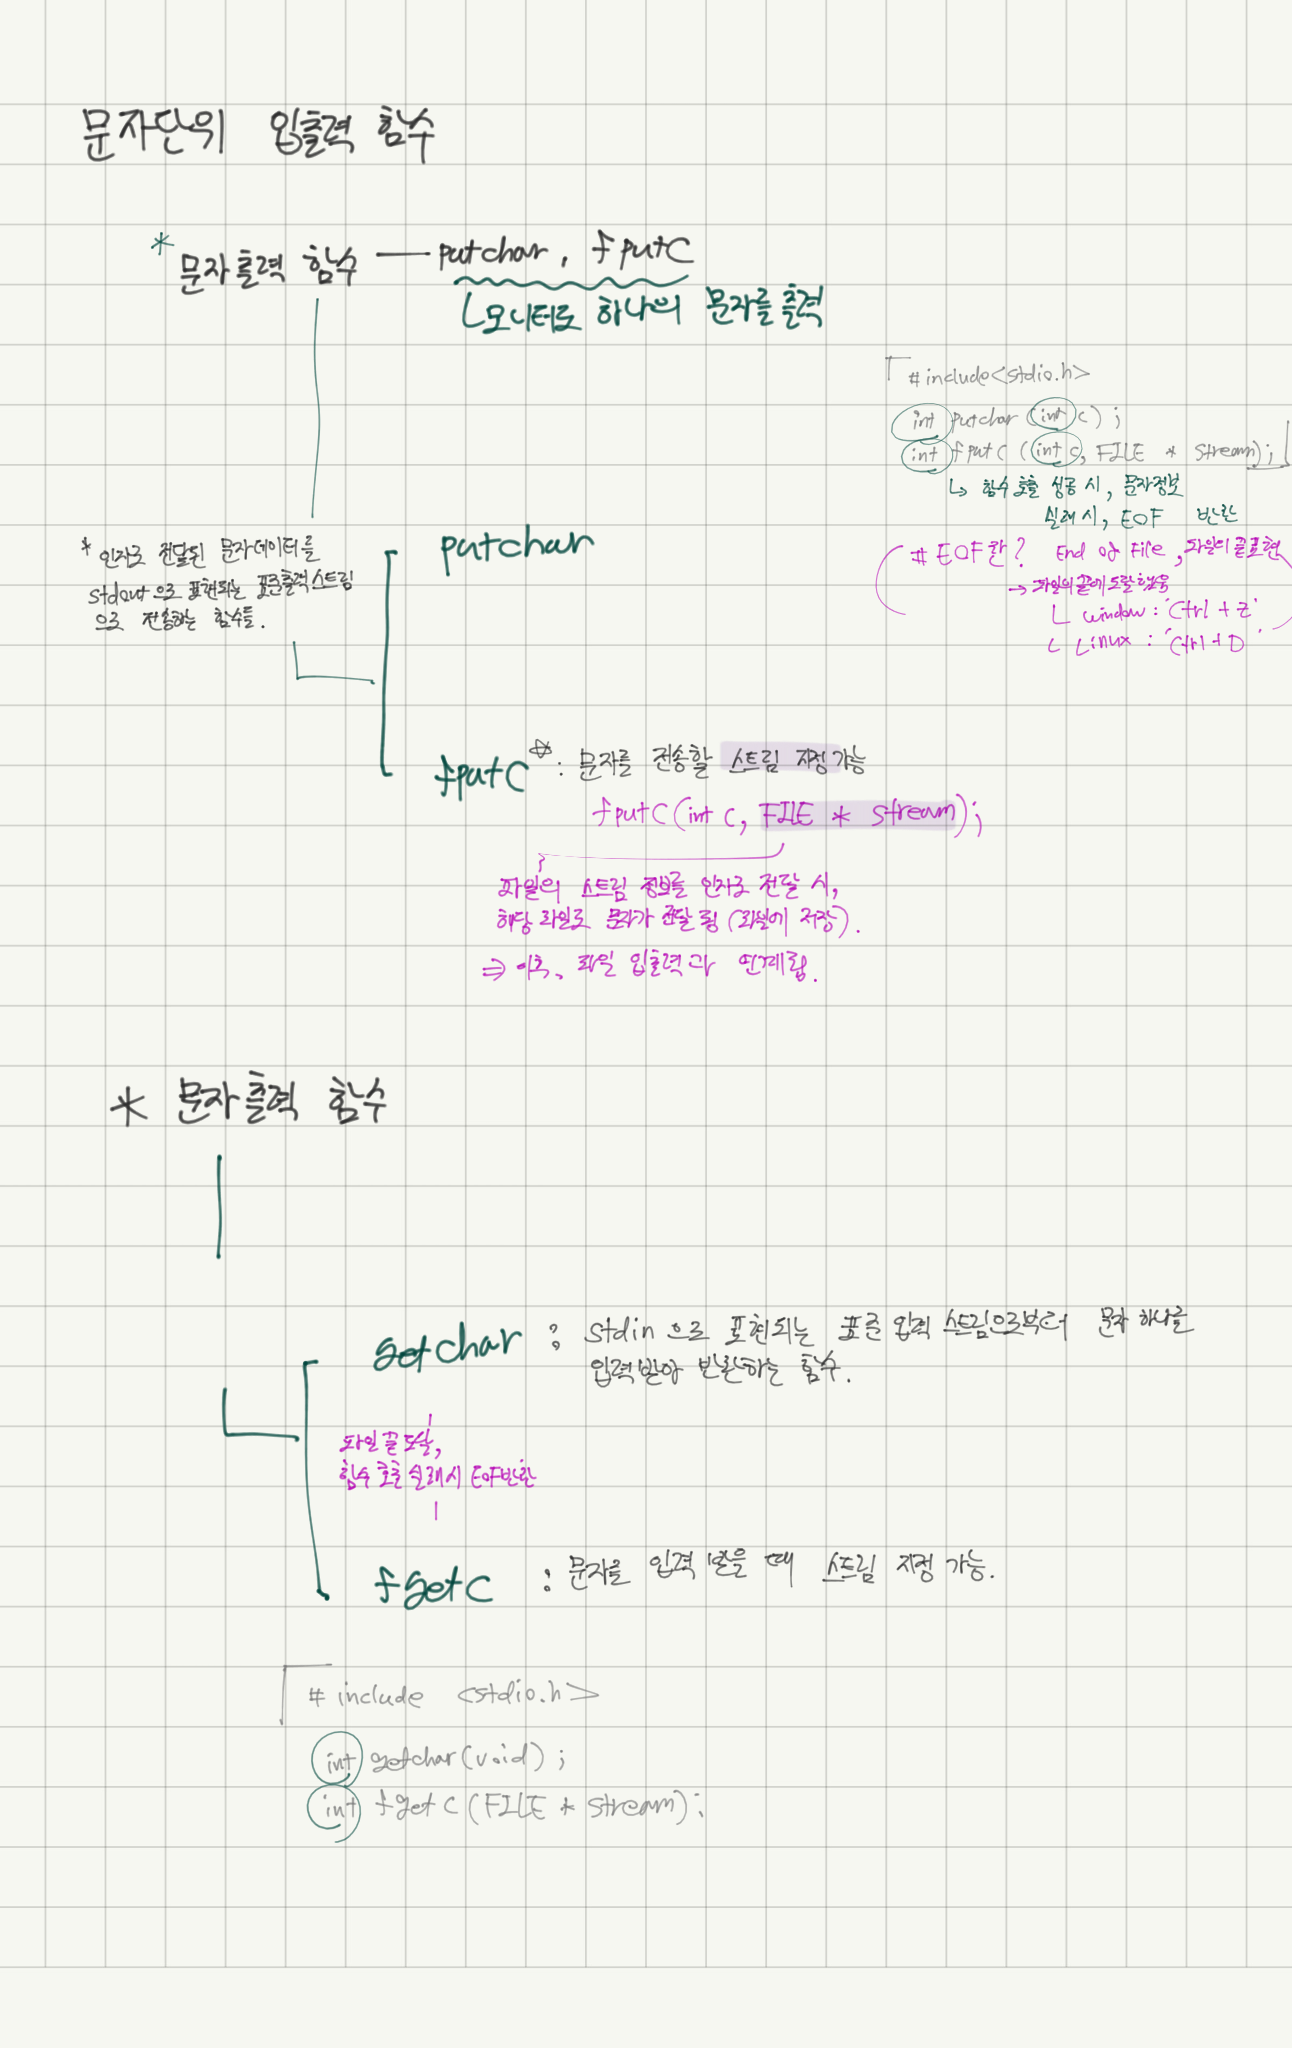 문자단위 입출력 함수
* 문자출력 함수 — putchar, fputc
ㄴ모니터로 하나의 문자를 출력
#include<stdio.h>
int putchar (int c) ;
int fputc (int c, FILE * stream);
↳ 함수 호출 성공 시, 문자정보
실패 시, EOF 반환
# EOF란? End of File, 파일의 끝표현
→ 파일의 끝에 도달했음
ㄴ window : 'Ctrl + Z'
ㄴ Linux : 'Ctrl + D'
putchar
* 인자로 전달된 문자데이터를
stdout으로 표현되는 표준출력스트림
으로 전송하는 함수들.
fputc☆ : 문자를 전송할 스트림 지정가능
fputc(int c, FILE * stream);
파일의 스트림 정보를 인자로 전달 시,
해당 파일로 문자가 전달 됨 (파일에 저장).
⇒ 이후, 파일 입출력과 연계됨.
* 문자출력 함수
getchar : stdin 으로 표현되는 표준 입력 스트림으로부터 문자 하나를
입력받아 반환하는 함수.
파일 끝 도달,
함수 호출 실패시 EOF반환
fgetc : 문자를 입력 받을 때 스트림 지정 가능.
# include <stdio.h>
int getchar(void) ;
int fgetc (FILE * stream);